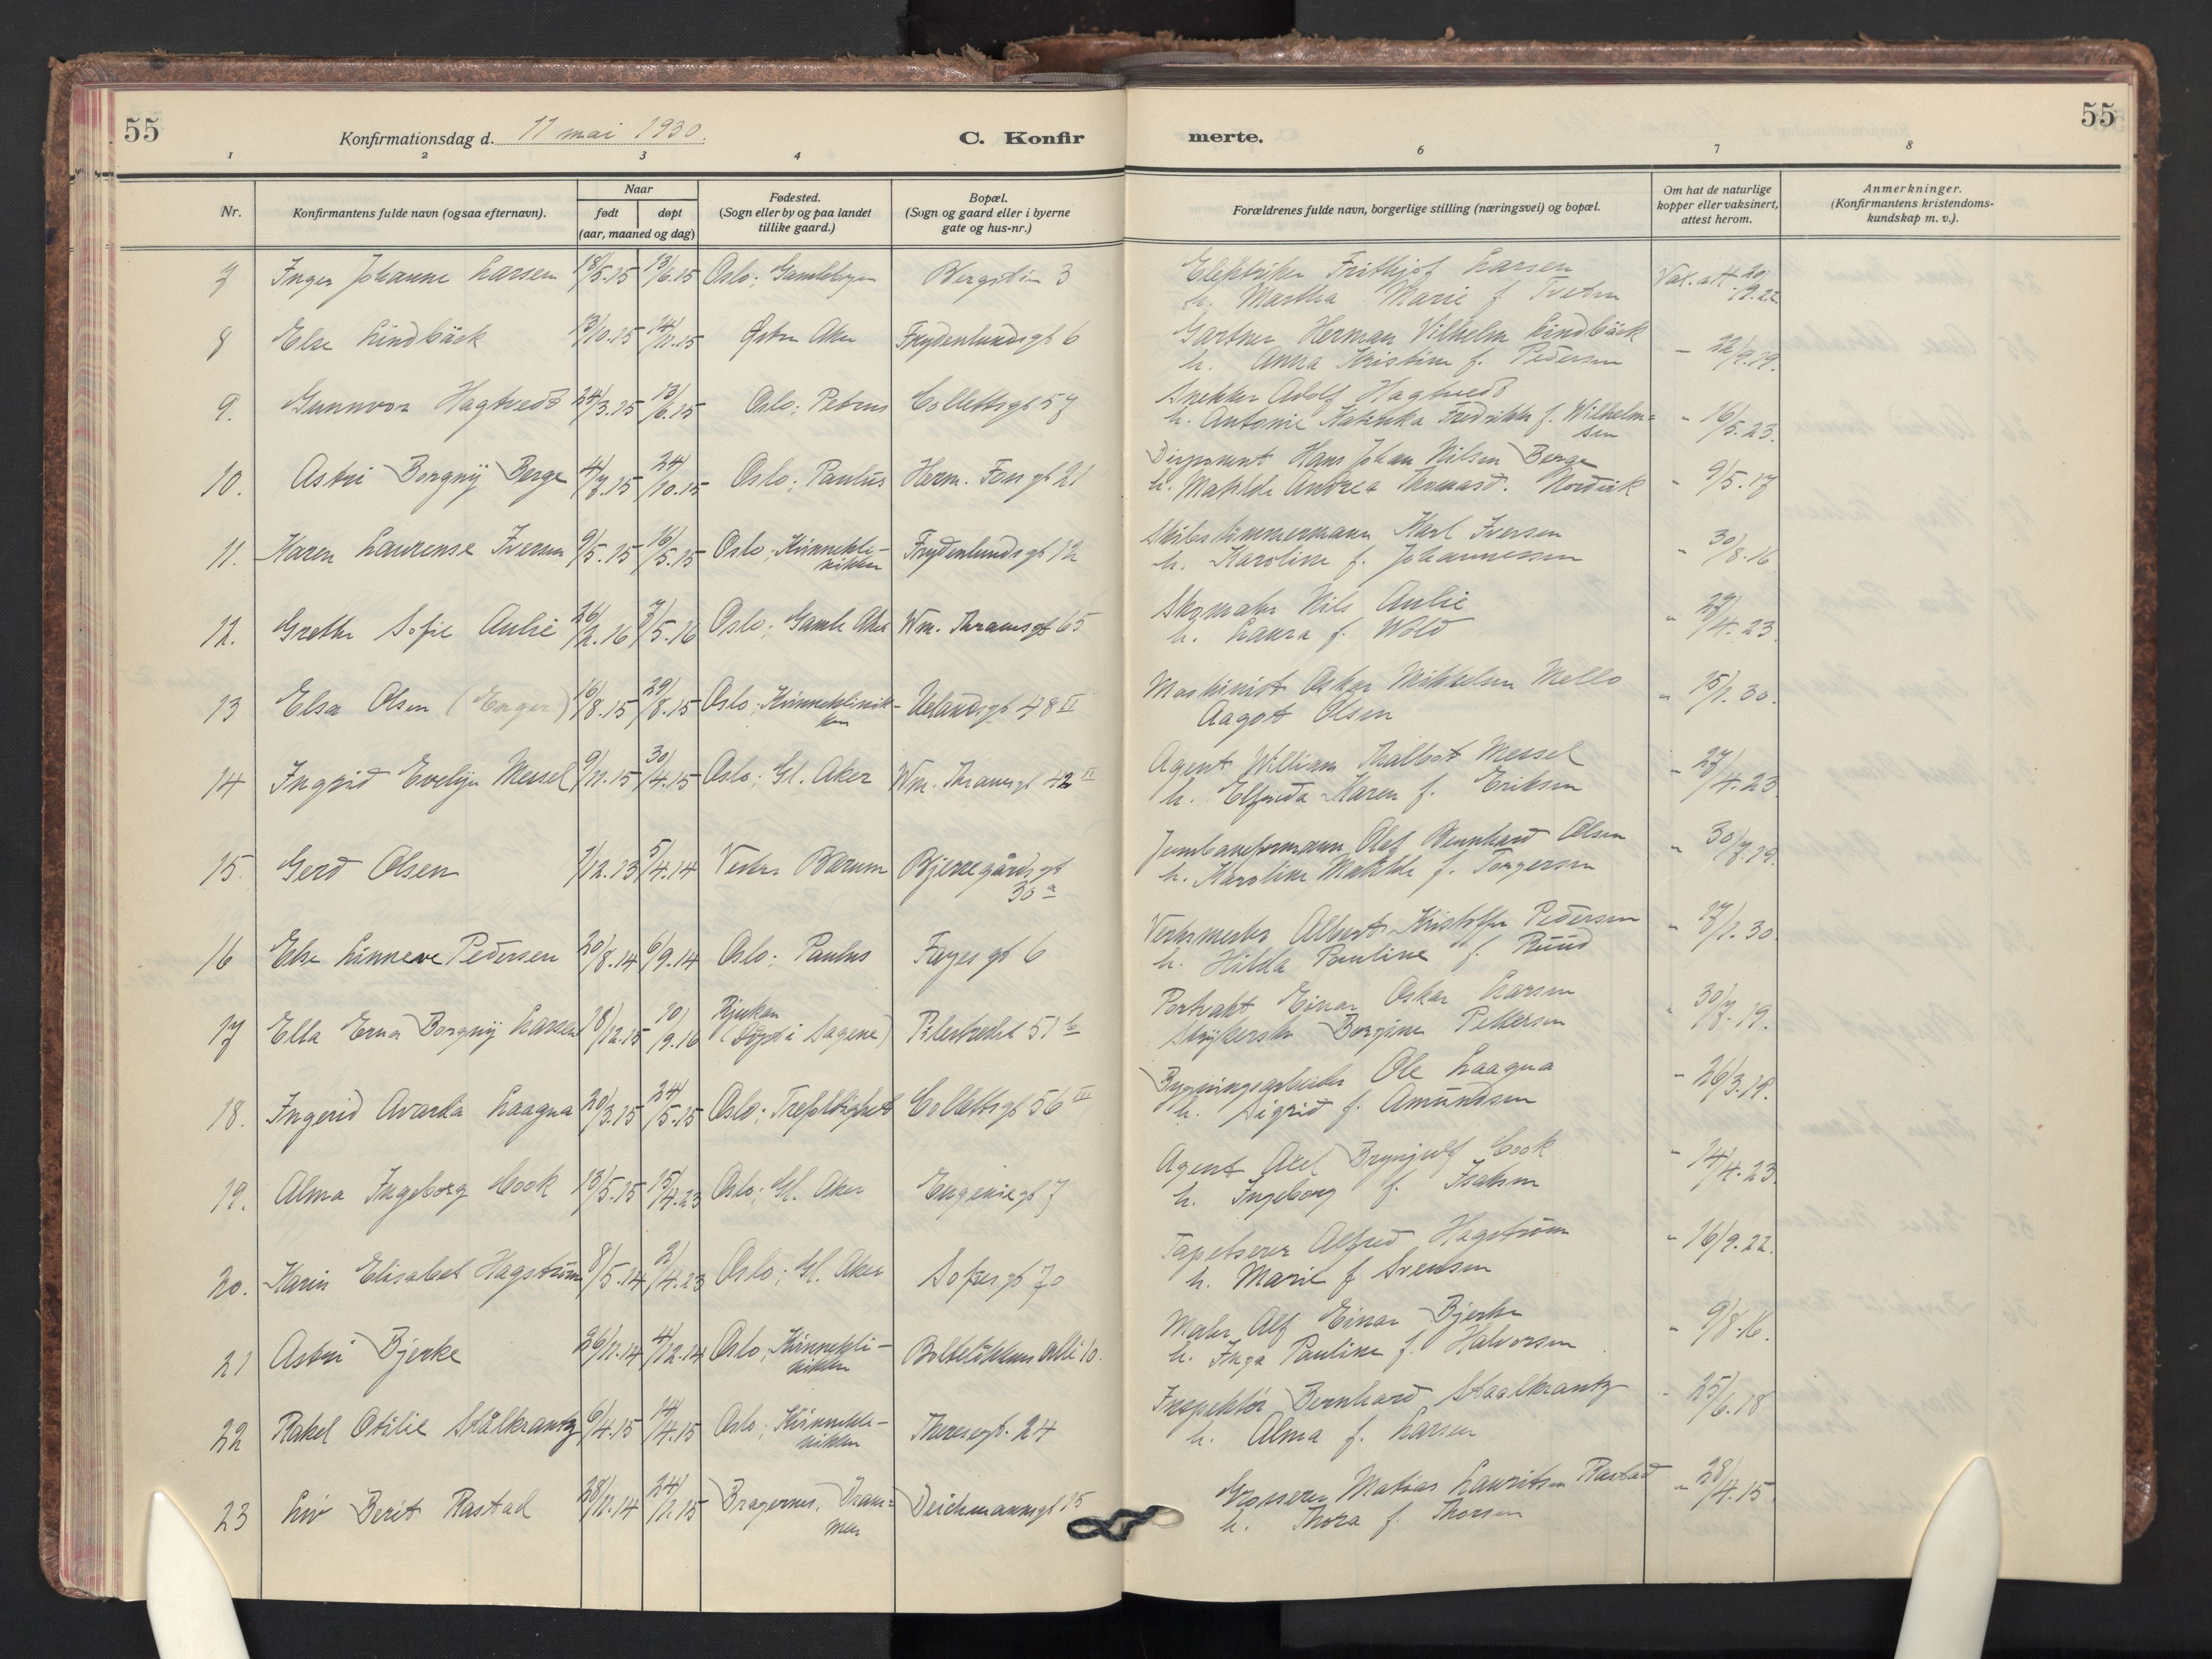 55
Konfirmationsdag d. 11 mai 1930.
C. Konfir
merte.
55
1 2 3 4 6 7 8
Nr.
Konfirmantens fulde navn (ogsaa efternavn).
Naar
født døpt
(aar, maaned og dag)
Fødested.
(Sogn eller by og paa landet
tillike gaard.)
Bopæl.
(Sogn og gaard eller i byerne
gate og hus-nr.)
Forældrenes fulde navn, borgerlige stilling (næringsvei) og bopæl.
Om hat de naturlige
kopper eller vaksinert,
attest herom.
Anmerkninger.
(Konfirmantens kristendoms-
kundskap m. v.).
7 Inger Johanne Larsen 18/5.15 13/6.15 Oslo; Gamlebyen 3
Frithjof Larsen
h. Martha Marie f. Tveten
8 Else Lindbäck 13/10.15 14/11.15 Østre Aker Frydenlundsgt 6
Gartner Herman Vilhelm Lindbäck
h. Anna Kristine f. Pedersen
9. Gunnvor Hagtvedt 24/3.15 13/6.15 Oslo; Petrus Collettsgt 57
Snekker Adolf Hagtvedt
h. Antonie Katrinka Fredrikke f. Wilhelm=
sen
16/5.23.
10. Astri Borgny Berge 4/8.15 24/10.15 Oslo; Paulus Herm. Fossgt 21
Disponent Hans Johan Nilsen Berge
h. Matilde Andrea Thomasd. Nordvik
9/5.17
11. Karen Laurense Iversen 9/5.15 16/5.15 Oslo; Kvinnekli-
nikken Frydenlundsgt 12
Skibstømmermann Karl Iversen
h. Karoline f. Johannessen
30/8.16
12. Grethe Sofie Aulie 26/2.16 7/5.16 Oslo; Gamle Aker Wm. Thranesgt 65
Skomaker Nils Aulie
h. Laura f. Wold
29/4.23.
13 Elsa Olsen (Enger) 16/8.15 29/8.15 Oslo; Kvinneklinik-
ken Uelandsgt 48 II
Maskinist Oskar Mikkelsen Mello
Aagot Olsen
15/1.30.
14 Ingrid Evelyn Messel 9/11.15 30/4.15 Oslo; Gl. Aker Wm. Thranesgt 42 II
Agent William Thalbot Messel
h. Elfrida Karen f. Eriksen
27/4.23
15. Gerd Olsen 1/12.13 5/4.14 Vestre Bærum Bjerregårdsgt
30 a
Jernbaneformann Olaf Bernhard Olsen
h. Karoline Matilde f. Torgersen
30/7.19.
16 Else Linneve Pedersen 20/8.14 6/9.14 Oslo; Paulus Fayes gt 6
Verksmester Albert Kristoffer Pedersen
h. Hilda Pauline f. Ruud
17/1.30.
17 Ella Erna Borgny Larsen 18/12.15 10/9.16 Rjukan
(Døpt i Sagene) Pilestredet 51 b
Portvakt Einar Oskar Larsen
Strykerske Borgine Pettersen
30/7.19.
18. Ingerid Avarda Laagna 20/3.15 24/5.15 Oslo; Trefoldighet Collettsgt 56 III
Bygningsarbeider Ole Laagna
h. Sigrid f. Amundsen
26/3.19.
19. Alma Ingeborg Cook 13/5.15 15/4.23 Oslo; Gl. Aker Eugeniegt 7
Agent Axel Brynjulf Cook
h. Ingeborg f. Isaksen
14/4.23
20. Karin Elisabet Hagstrøm 8/5.14 2/4.23 Oslo; Gl. Aker Sofiesgt 70
Tapetserer Alfred Hagstrøm
h. Marie f. Svensen
16/9.22.
21 Astri Bjerke 26/11.14 4/12.14 Oslo; Kvinnekli-
nikken Bolteløkkens allé 10.
Maler Alf Einar Bjerke
h. Inga Pauline f. Halvorsen
9/8.16.
22 Rakel Otilie Stålkrantz 6/4.15 14/4.15 Oslo; Kvinnekli-
nikken Theresegt. 24
Inspektør Bernhard Staalkrantz
h. Alma f. Larsen
25/6.18
23 Liv Berit Rastad 28/11.14 24/1.15 Bragernes, Dram=
men Deichmannsgt 15
Grosserer Matias Lauritsen Rastad
h. Thora f. Thorsen
28/4.15